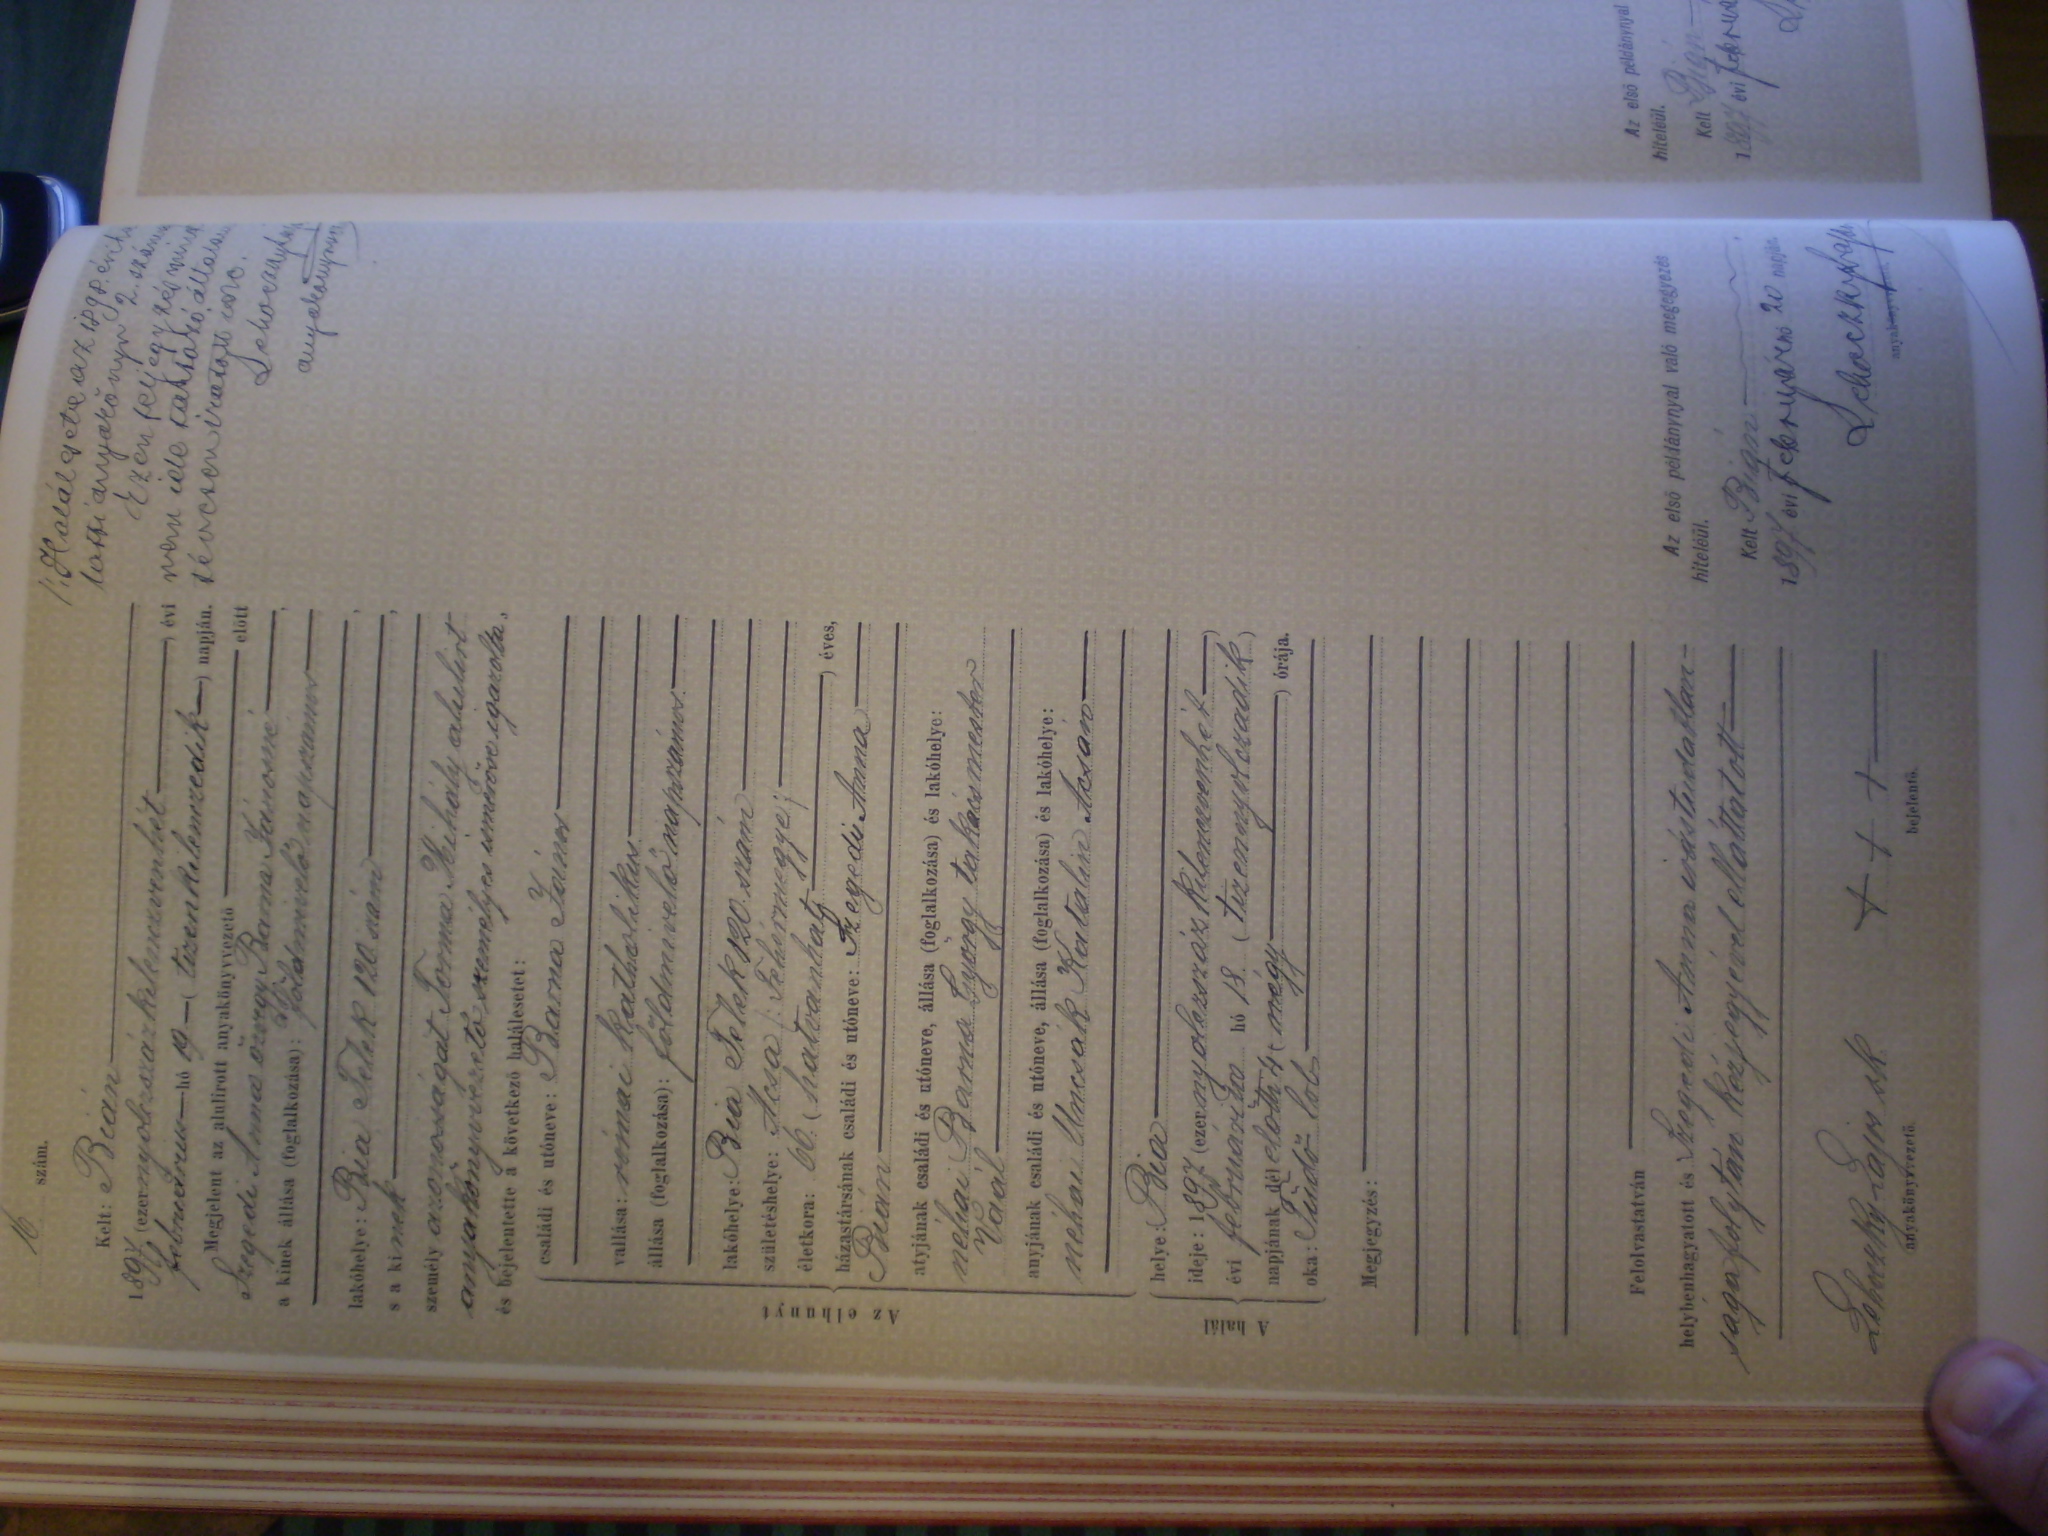 16 szám.
Kelt: Bián
1897 (ezernyolczszázkilenczvenhét) évi
február hó 19 (tizenkilenczedik) napján.
Megjelent az alulirott anyakönyvvezető előtt
Szegedi Anna özvegy Barna Jánosné
a kinek állása (foglalkozása): földmivelő napszámos
lakóhelye: Bia Telek 120 szám,
s a kinek,
személy azonosságát Torma Mihály albiri
anyakönyvvezető személyes ismerőse igazolta,
és bejelentette a következő halálesetet:
Az elhunyt
családi és utóneve: Barna János
vallása: római katholikus
állása (foglalkozása): földmivelő napszámos
lakóhelye: Bia Telek 120. szám
születéshelye: Acsa /: Fehérmegye :/
életkora: 66. (hatvanhat) éves,
házastársának családi és utóneve: Szegedi Anna
Bián
atyjának családi és utóneve, állása (foglalkozása) és lakóhelye:
néhai Barna György takácsmester
Vaál
anyjának családi és utóneve, állása (foglalkozása) és lakóhelye:
néhai Uncsák Katalin Acsán
A halál
helye: Bia
ideje: 1897 (ezernyolczszázkilenczvenhét)
évi február hó 18. (tizennyolczadik)
napjának dél előtt 4 (négy) órája.
oka: Tüdő lob
Megjegyzés:
Felolvastatván
helybenhagyatott és Szegedi Anna irástudatlan-
sága folytán kézjegyével elláttatott
Schoeszky Lajos sk. + + +
anyakönyvvezető. bejelentő.
1. Haláleset az 1898. évi
anyakönyv 2. szám
Ezen feljegyzés mint
nem ide tartozó
anyakönyvv.
Az első példánynyal való megegyezés
hiteléül.
Kelt Bián
1897 évi február hó 20 napján.
anyakönyvvezető.
Az első példánynyal
hiteléül.
Kelt Bián
1897 évi február